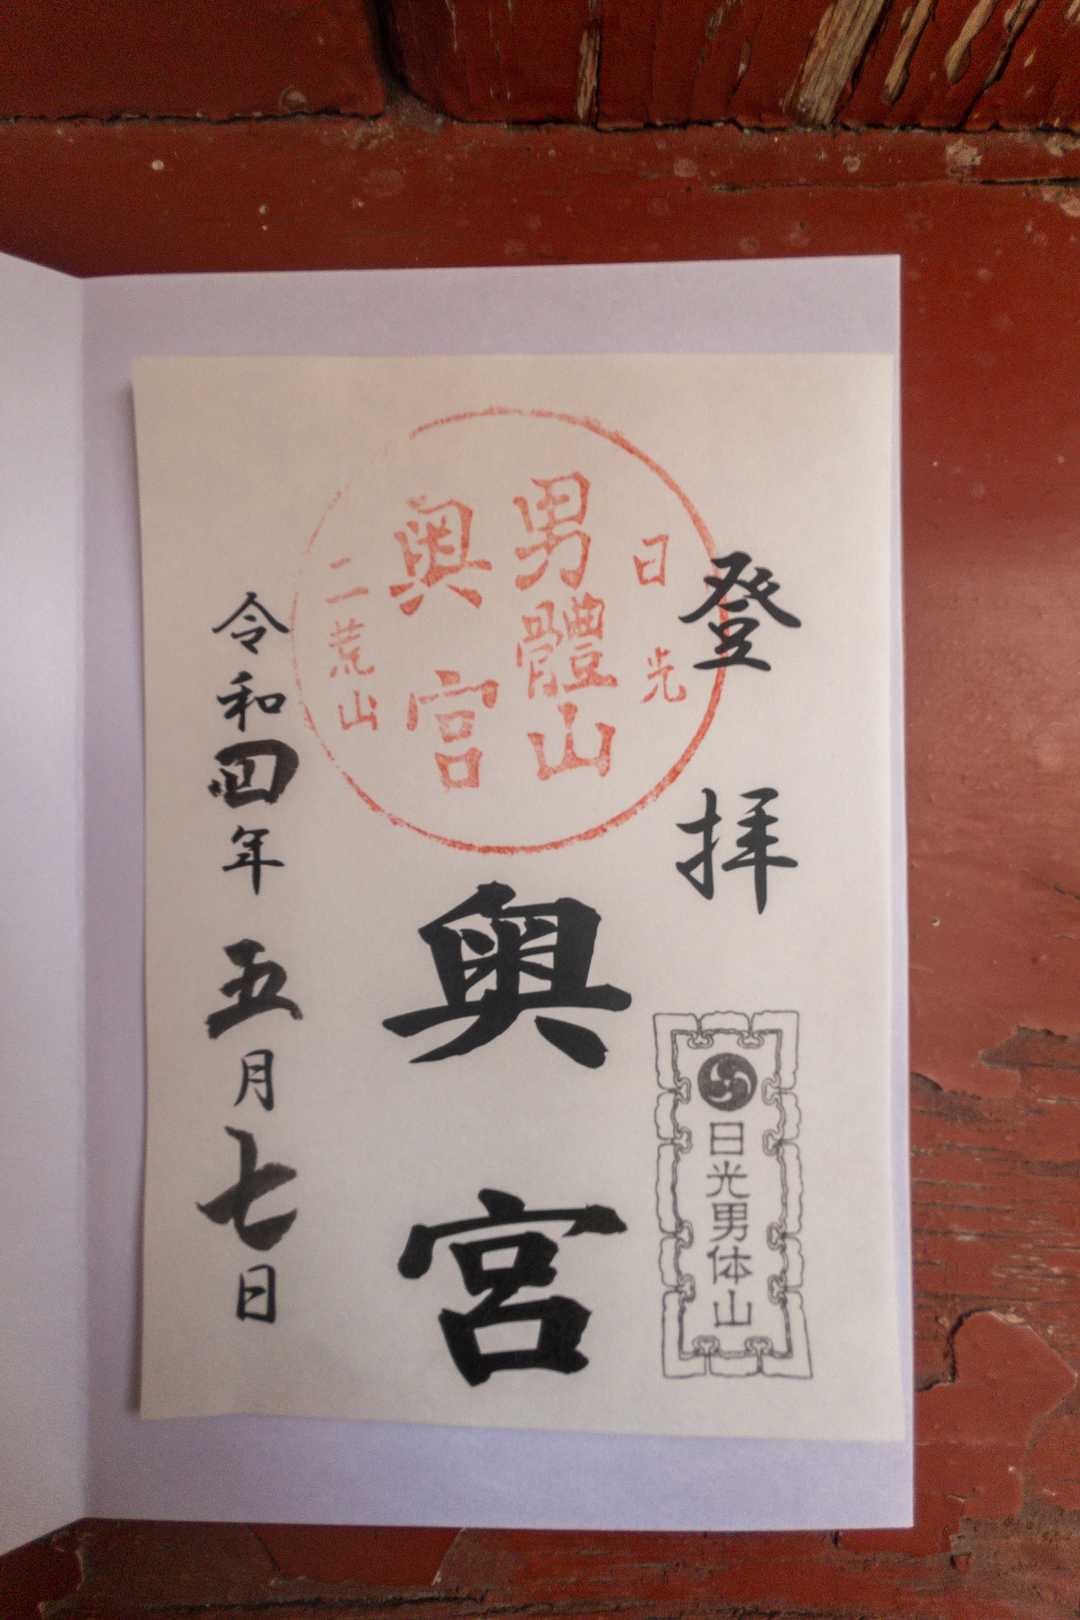 登拝
日光男体山
日光
男體山
奥宮
二荒山
奥宮
令和四年五月七日